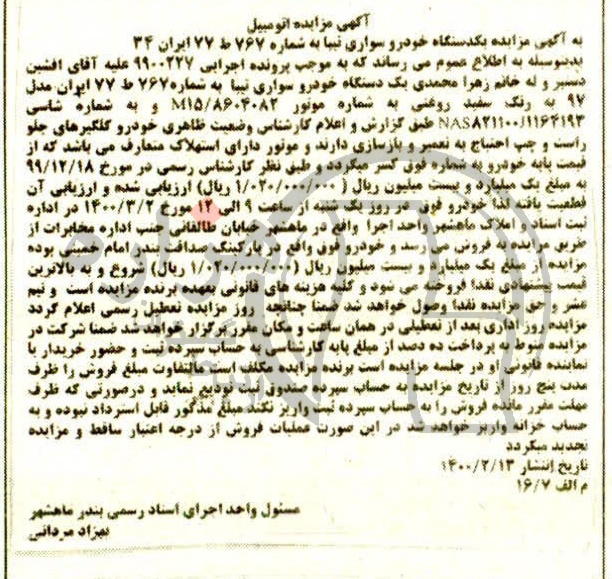 آگهی مزایده اتومبیل
به آگهی مزایده یکدستگاه خودرو سواری تیبا به شماره ۷۶۷ ط ۷۷ ایران ۳۴
بدینوسیله به اطلاع عموم می رساند که به موجب پرونده اجرایی ۹۹۰۰۲۲۷ علیه آقای افشین
دستیر و له خانم زهرا محمدی یک دستگاه خودرو سواری تیبا به شماره ۷۶۷ ط ۷۷ ایران مدل
۹۷ به رنگ سفید روغنی به شماره موتور M15/8604082 و به شماره شاسی
NAS821100/1164193 طبق گزارش و اعلام کارشناس وضعیت ظاهری خودرو گلگیرهای جلو
راست و چپ احتیاج به تعمیر و بازسازی دارند و موتور دارای استهلاک متعارف می باشد که از
قیمت پایه خودرو به شماره فوق کسر میگردد و طبق نظر کارشناس رسمی در مورخ ۹۹/۱۲/۱۸
به مبلغ یک میلیارد و بیست میلیون ریال (۱/۰۲۰/۰۰۰/۰۰۰ ریال) ارزیابی شده و ارزیابی آن
قطعیت یافته لذا خودرو فوق در روز یک شنبه از ساعت ۹ الی ۱۲ مورخ ۱۴۰۰/۳/۲ در اداره
ثبت اسناد و املاک ماهشهر واحد اجرا واقع در ماهشهر خیابان طالقانی جنب اداره مخابرات از
طریق مزایده به فروش می رسد و خودرو فوق واقع در پارکینگ صداقت بندر امام خمینی بوده
مزایده از مبلغ یک میلیارد و بیست میلیون ریال (۱/۰۲۰/۰۰۰/۰۰۰ ریال) شروع و به بالاترین
قیمت پیشنهادی نقدا فروخته می شود و کلیه هزینه های قانونی بعهده برنده مزایده است و نیم
عشر و حق مزایده نقدا وصول خواهد شد ضمنا چنانچه روز مزایده تعطیل رسمی اعلام گردد
مزایده روز اداری بعد از تعطیلی در همان ساعت و مکان مقرر برگزار خواهد شد ضمنا شرکت در
مزایده منوط به پرداخت ده درصد از مبلغ پایه کارشناسی به حساب سپرده ثبت و حضور خریدار یا
نماینده قانونی او در جلسه مزایده است برنده مزایده مکلف است مالتفاوت مبلغ فروش را ظرف
مدت پنج روز از تاریخ مزایده به حساب سپرده صندوق ثبت تودیع نماید و درصورتی که ظرف
مهلت مقرر مانده فروش را به حساب سپرده ثبت واریز نکند مبلغ مذکور قابل استرداد نبوده و به
حساب خزانه واریز خواهد شد در این صورت عملیات فروش از درجه اعتبار ساقط و مزایده
تجدید میگردد
تاریخ انتشار ۱۴۰۰/۲/۱۳
م الف ۱۶/۷
مسئول واحد اجرای اسناد رسمی بندر ماهشهر
بهزاد مردانی